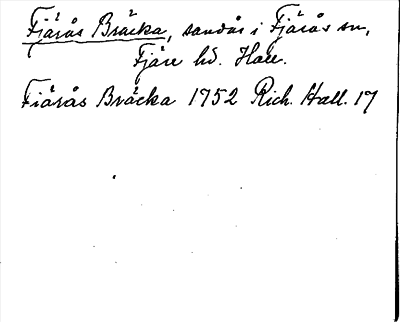 Fjärås Bräcka, sandås i Fjärås sn,
Fjäre hd. Hall.
Fiärås Bräcka 1752 Rich. Hall. 17